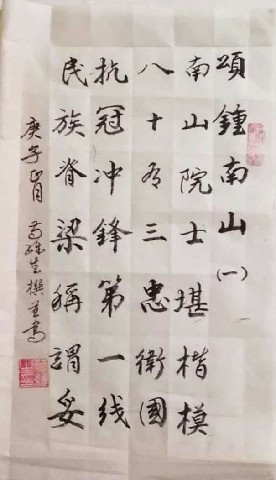 頌鍾南山(一)
南山院士堪楷模
八十有三忠衛國
抗冠冲鋒第一线
民族脊梁稱謂妥
庚子正月 生撰并書